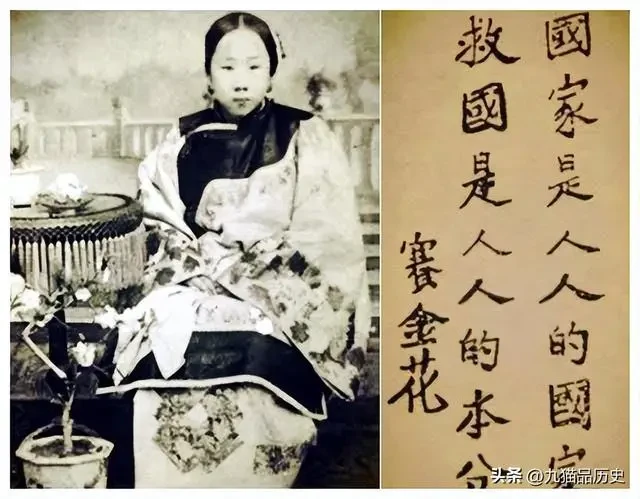 國家是人人的國家
救國是人人的本分
賽金花
头条 @九猫品历史